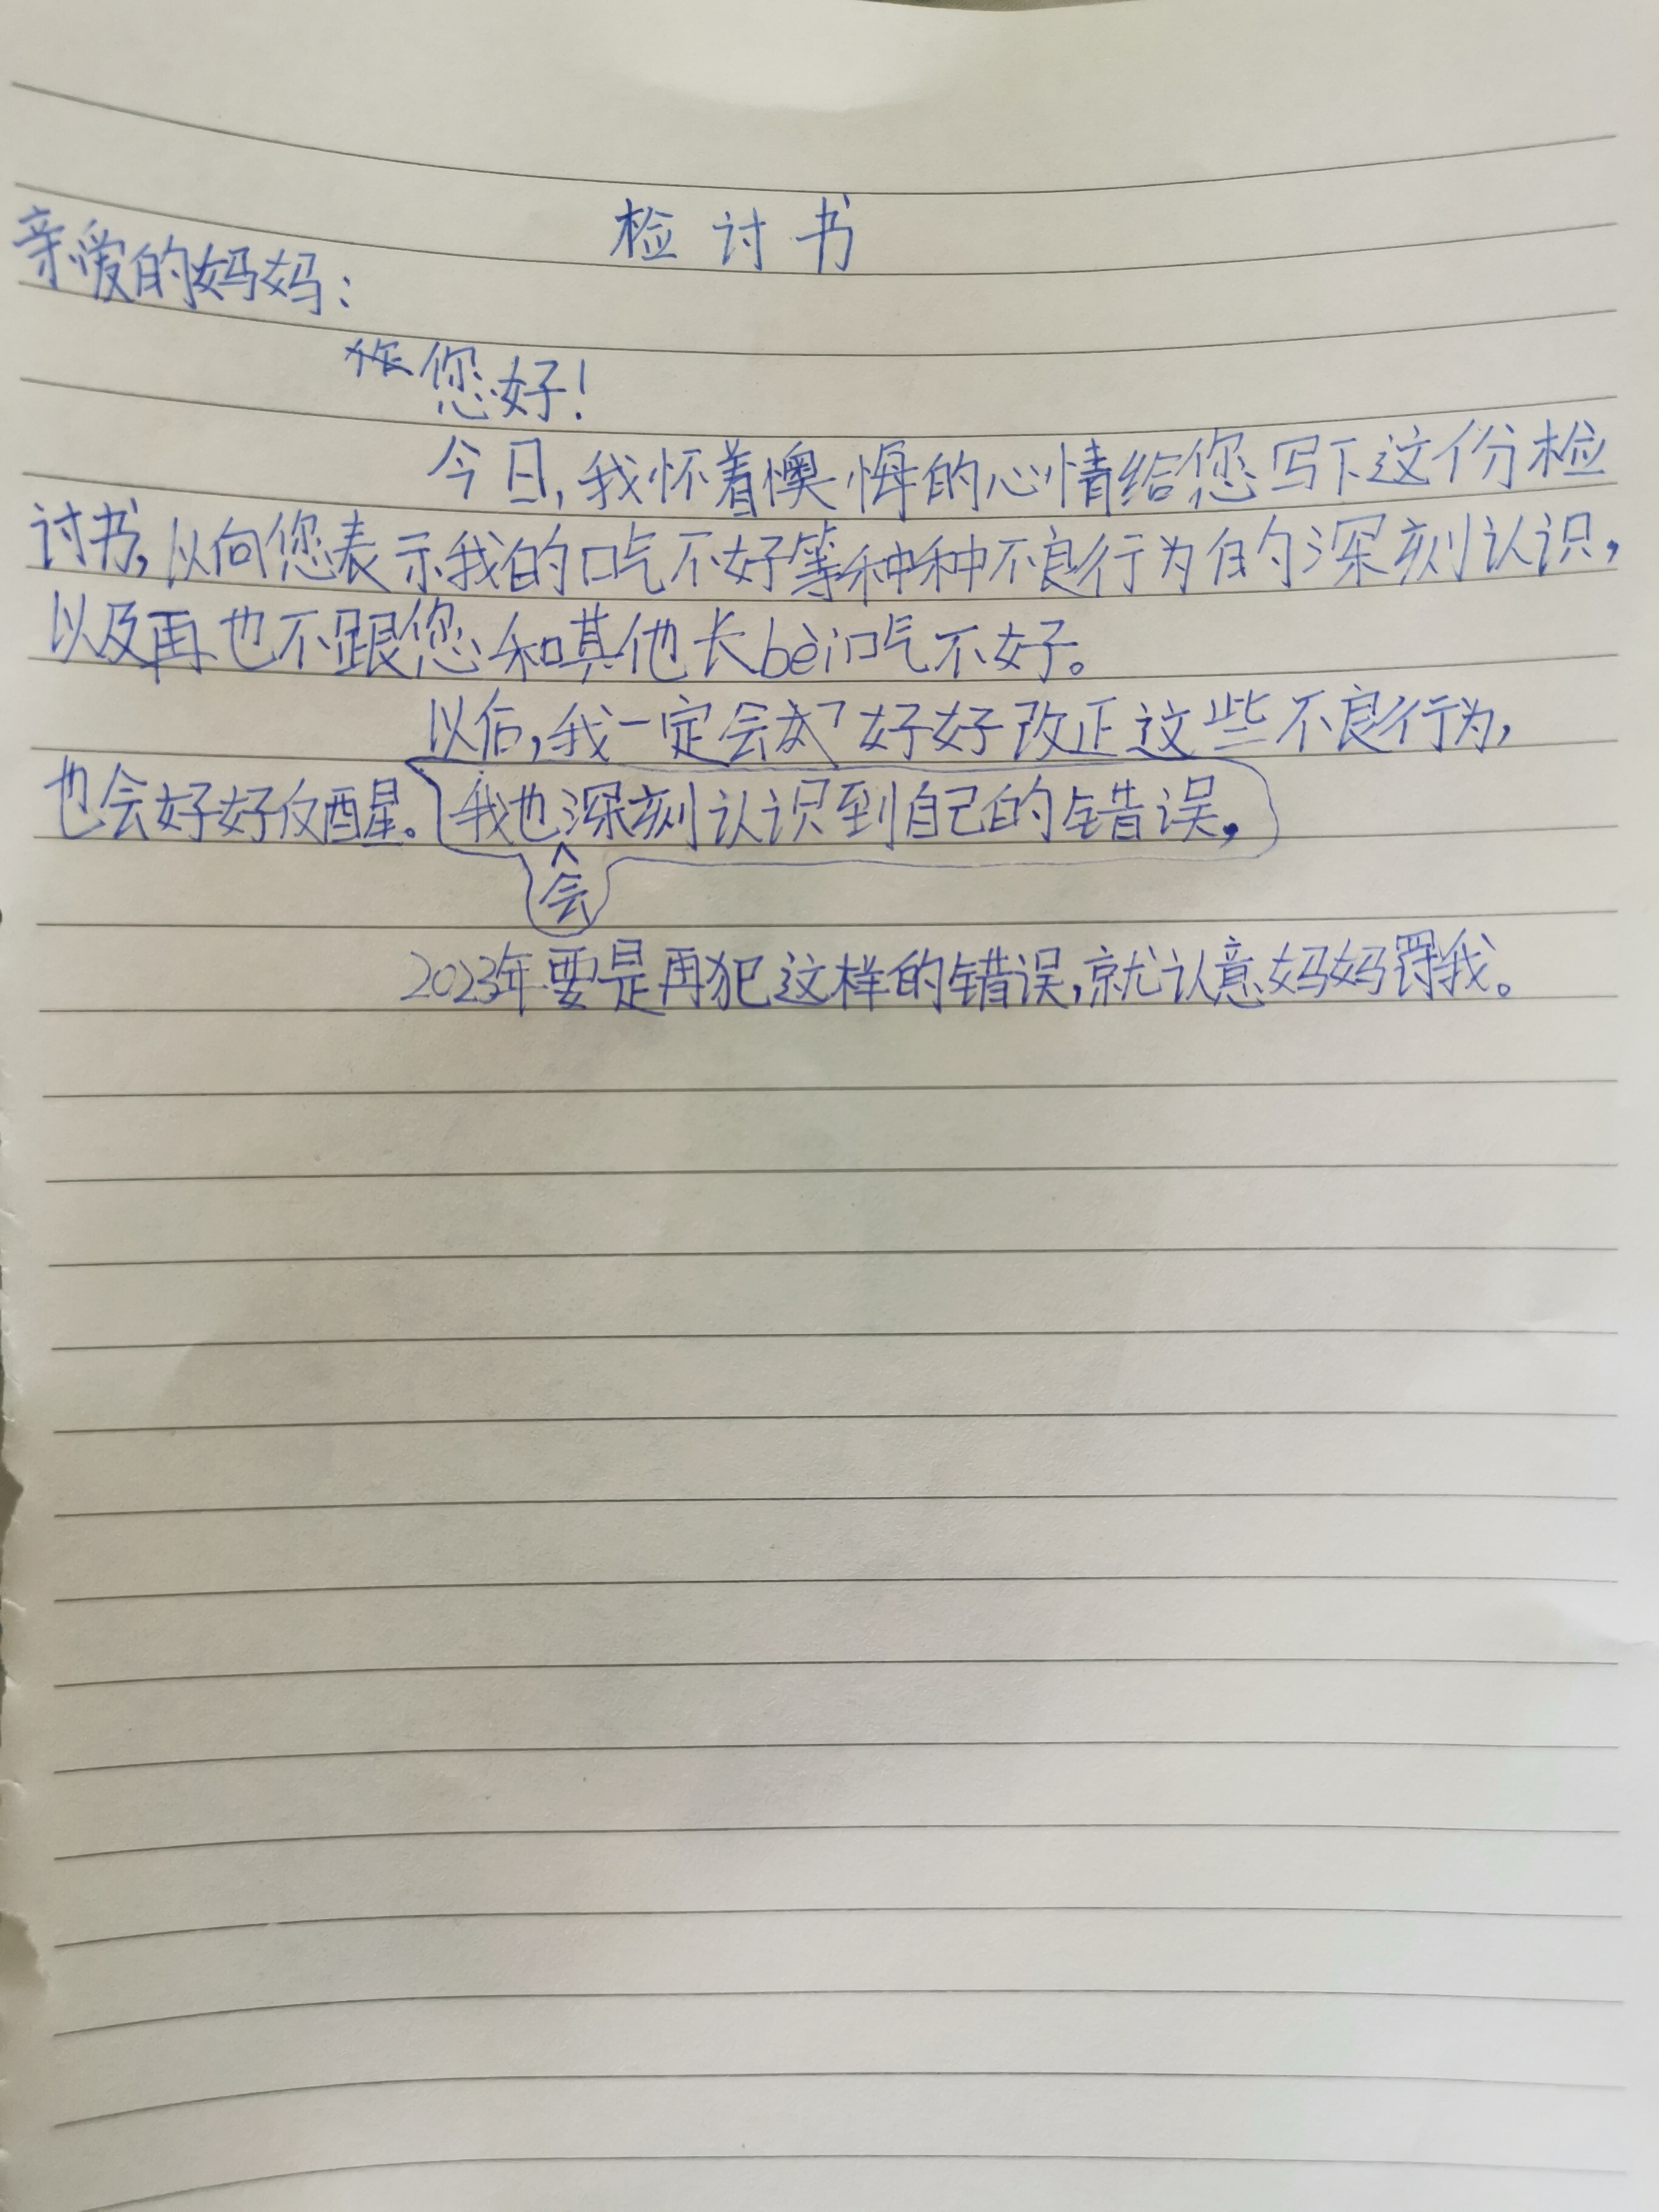 检讨书
亲爱的妈妈：
您好！
今日，我怀着懊悔的心情给您写下这份检
讨书，以向您表示我的口气不好等种种不良行为的深刻认识，
以及再也不跟您和其他长bèi口气不好。
以后，我一定会好好改正这些不良行为，
也会好好反醒。我也会深刻认识到自己的错误，
2023年要是再犯这样的错误，就认意妈妈罚我。